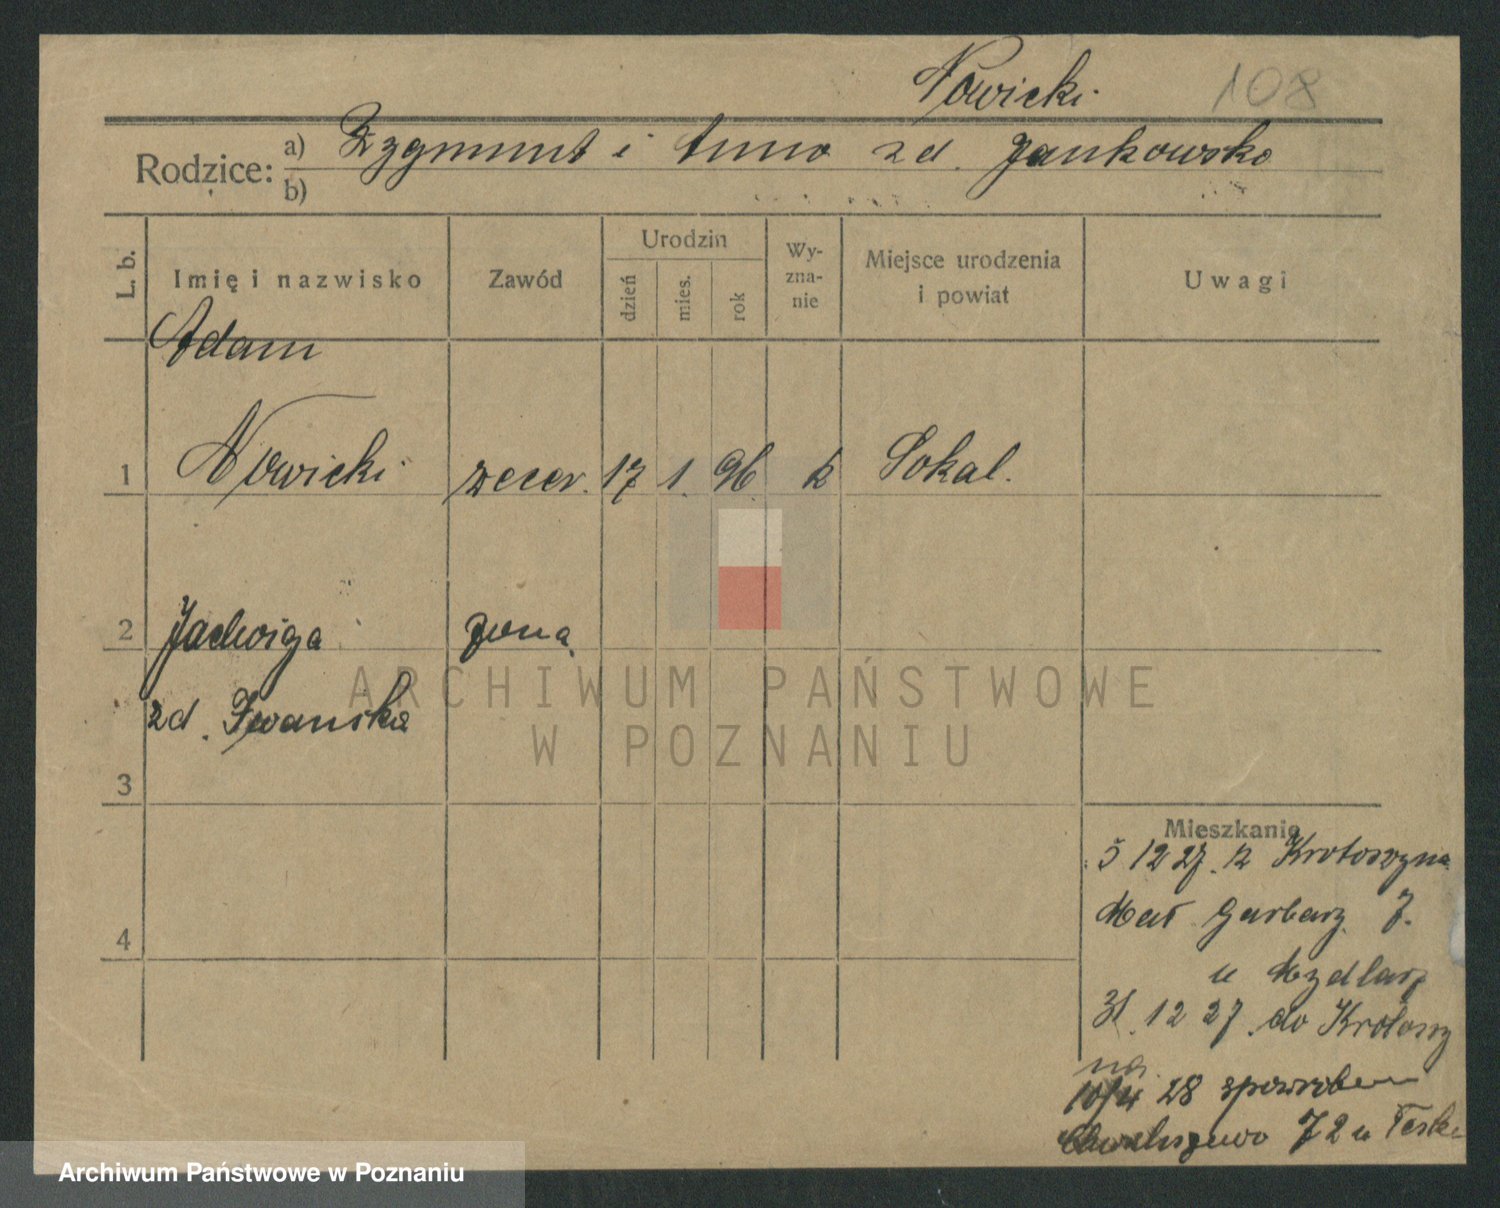 Nowicki 108
Rodzice: a) Zygmunt i Anna zd. Jankowska
b)
L. b. Imię i nazwisko Zawód Urodzin dzień mies. rok Wy-zna-nie Miejsce urodzenia i powiat Uwagi
Adam
1 Nowicki zecer. 17 1. 96. k Sokal.
2 Jadwiga żona
zd. Iwańska
3
Mieszkanie
5 12 27. z Krotoszyna
4 Mał. Garbary 7.
u Mydlarz
31. 12 27. do Krotoszy
na.
10/4 28 spowrotem
Chwaliszewo 72 u Teske
ARCHIWUM PAŃSTWOWE
W POZNANIU
Archiwum Państwowe w Poznaniu